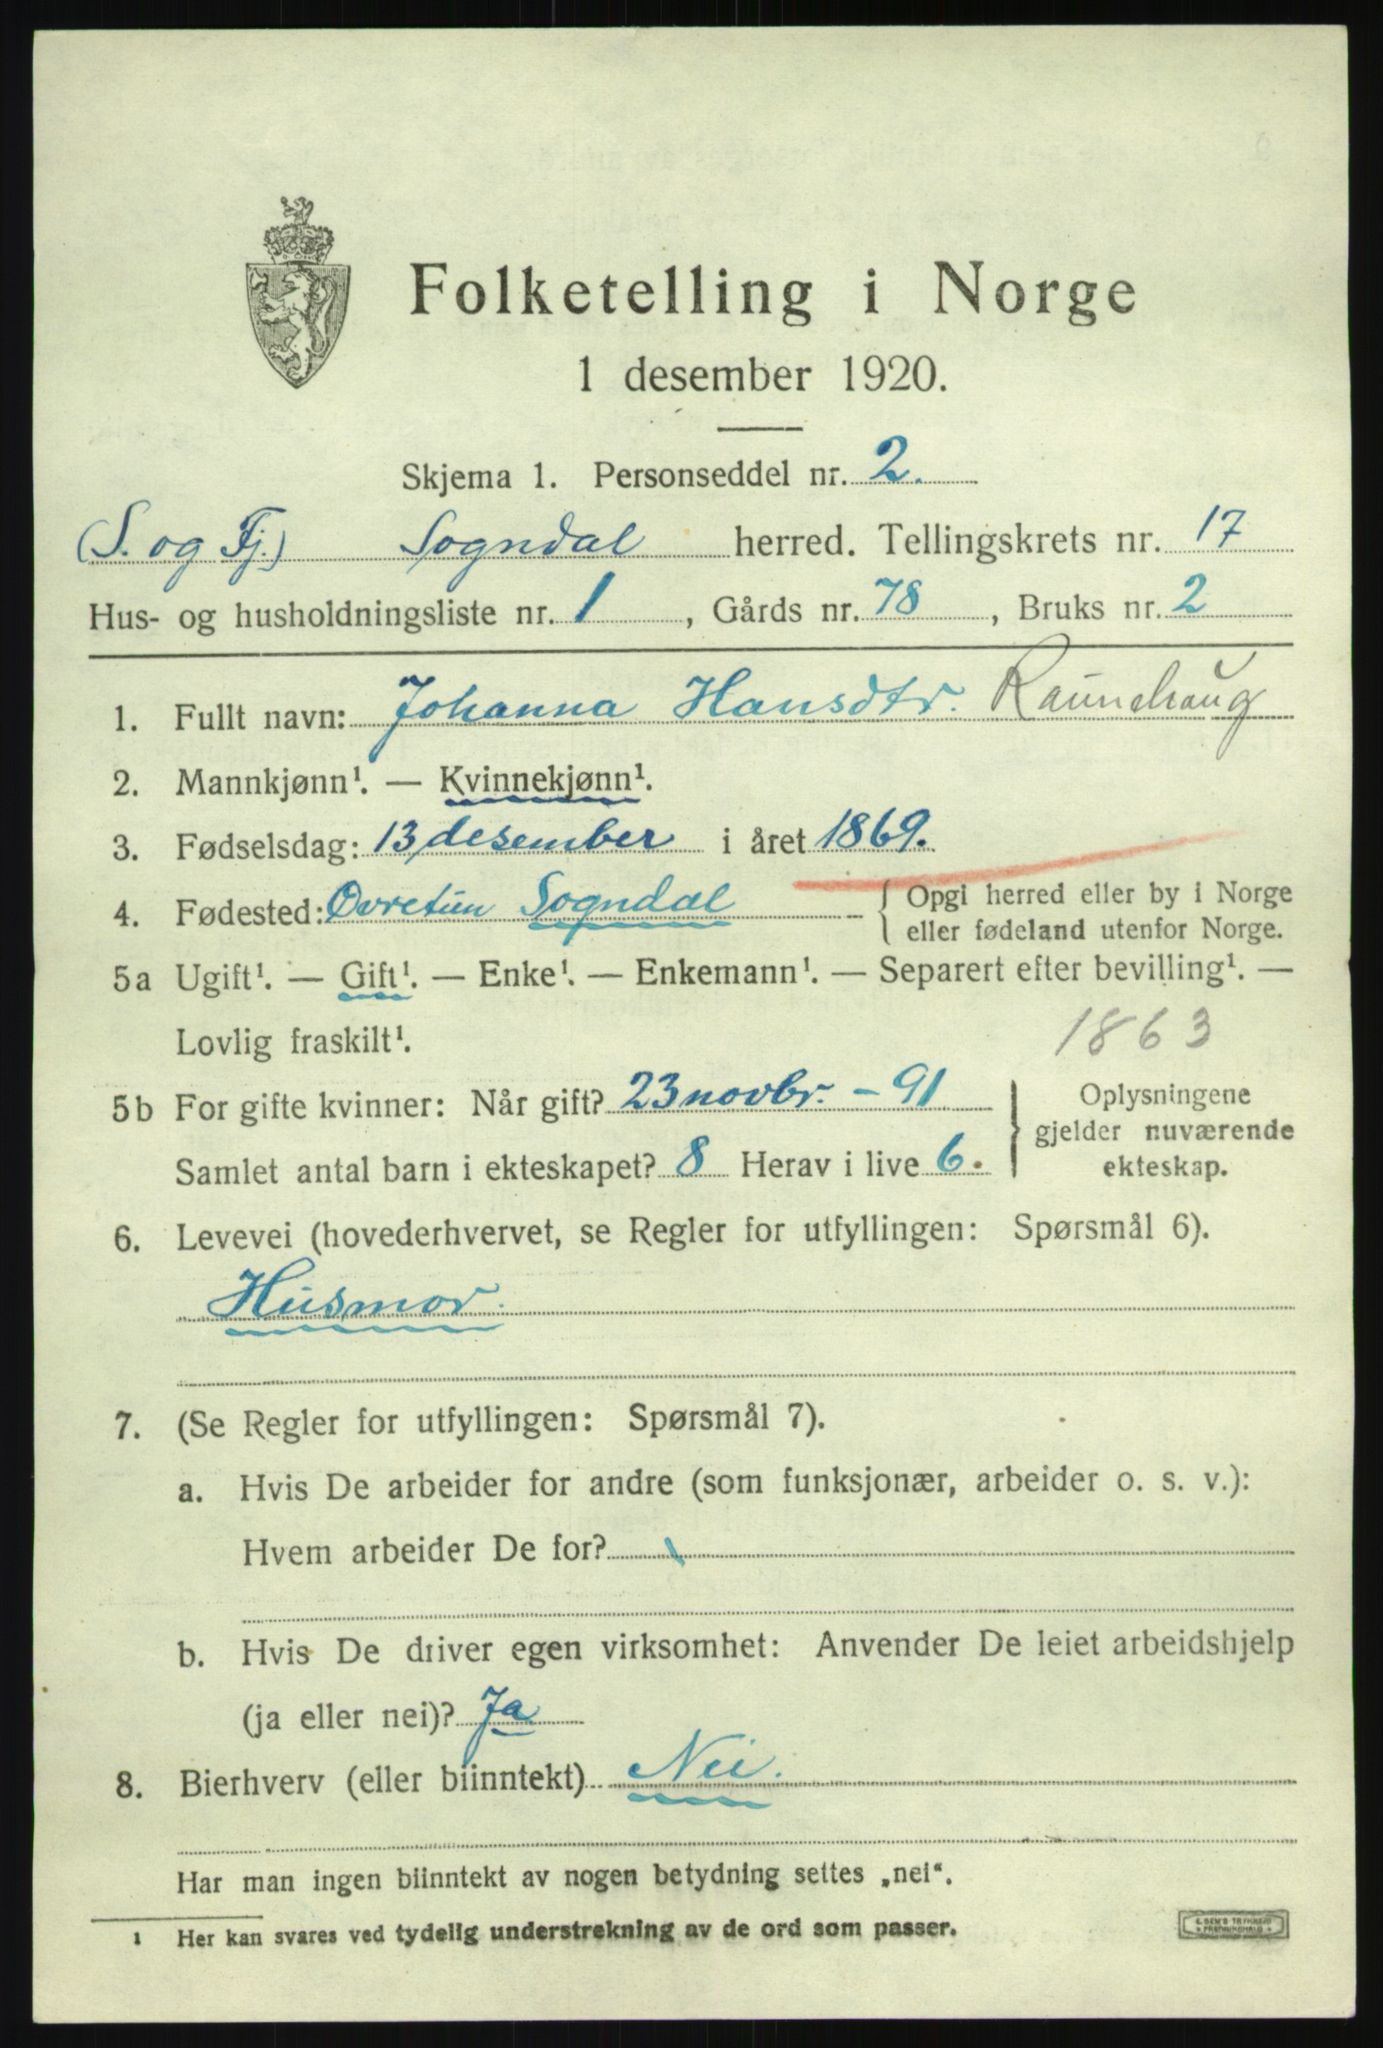 Folketelling i Norge
1 desember 1920.
Skjema 1. Personseddel nr. 2.
(S. og Fj.) Sogndal herred. Tellingskrets nr. 17
Hus- og husholdningsliste nr. 1, Gårds nr. 78, Bruks nr. 2
1. Fullt navn: Johanna Hansdtr.
2. Mannkjønn¹. — Kvinnekjønn¹.
3. Fødselsdag: 13 desember i året 1869.
4. Fødested: Øvretun Sogndal { Opgi herred eller by i Norge
eller fødeland utenfor Norge.
5a Ugift¹. — Gift¹. — Enke¹. — Enkemann¹. — Separert efter bevilling¹. —
Lovlig fraskilt¹.
1863
5b For gifte kvinner: Når gift? 23 novbr. - 91
Samlet antal barn i ekteskapet? 8 Herav i live 6.
} Oplysningene
gjelder nuværende
ekteskap.
6. Levevei (hovederhvervet, se Regler for utfyllingen: Spørsmål 6).
Husmor.
7. (Se Regler for utfyllingen: Spørsmål 7).
a. Hvis De arbeider for andre (som funksjonær, arbeider o. s. v.):
Hvem arbeider De for? \
b. Hvis De driver egen virksomhet: Anvender De leiet arbeidshjelp
(ja eller nei)? Ja
8. Bierhverv (eller biinntekt) Nei.
Har man ingen biinntekt av nogen betydning settes „nei“.
1 Her kan svares ved tydelig understrekning av de ord som passer.